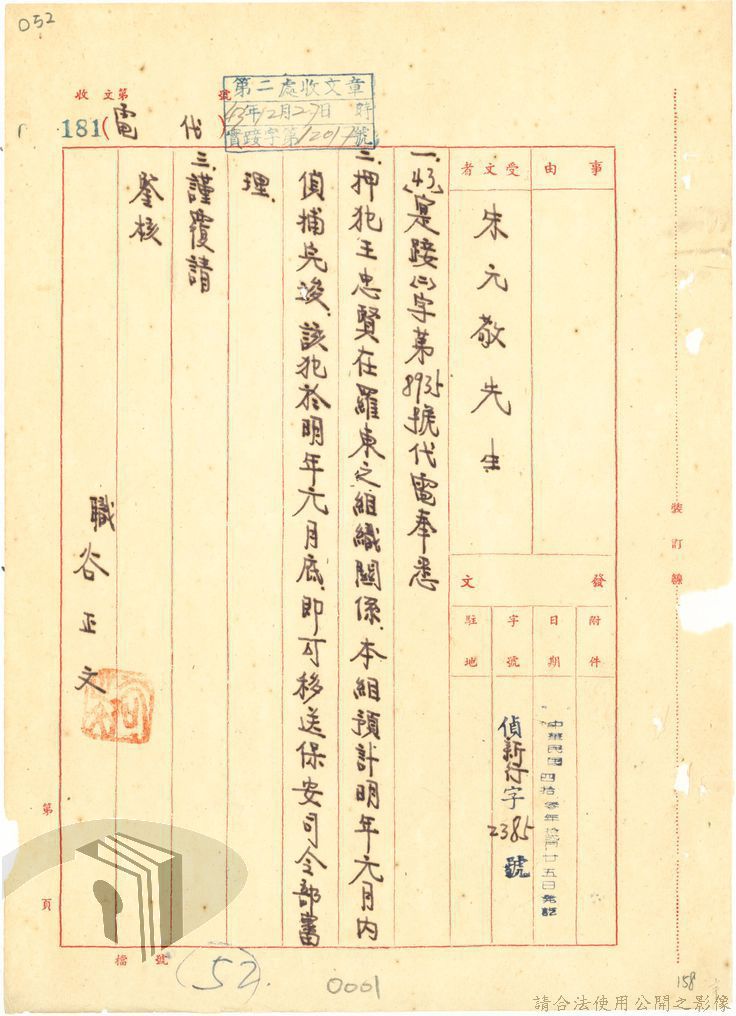 052
收文第 號
181(電 代)
第二處收文章
43年12月27日 時
實踐字第12017號
事由
受文者
朱元敬先生
發文
附件
日期
中華民國四拾叁年拾貳月廿五日發誌
字號
偵新行字2385號
駐地
一、(43)寔踐(二)字第8935號代電奉悉
二、押犯王忠賢在羅東之組織關係、本組預計明年元月內
偵捕完竣、該犯於明年元月底、即可移送保安司令部審
理、
三、謹覆請
鑒核
職 谷正文
裝訂線
第 頁
檔號
(52)
0001
158
請合法使用公開之影像